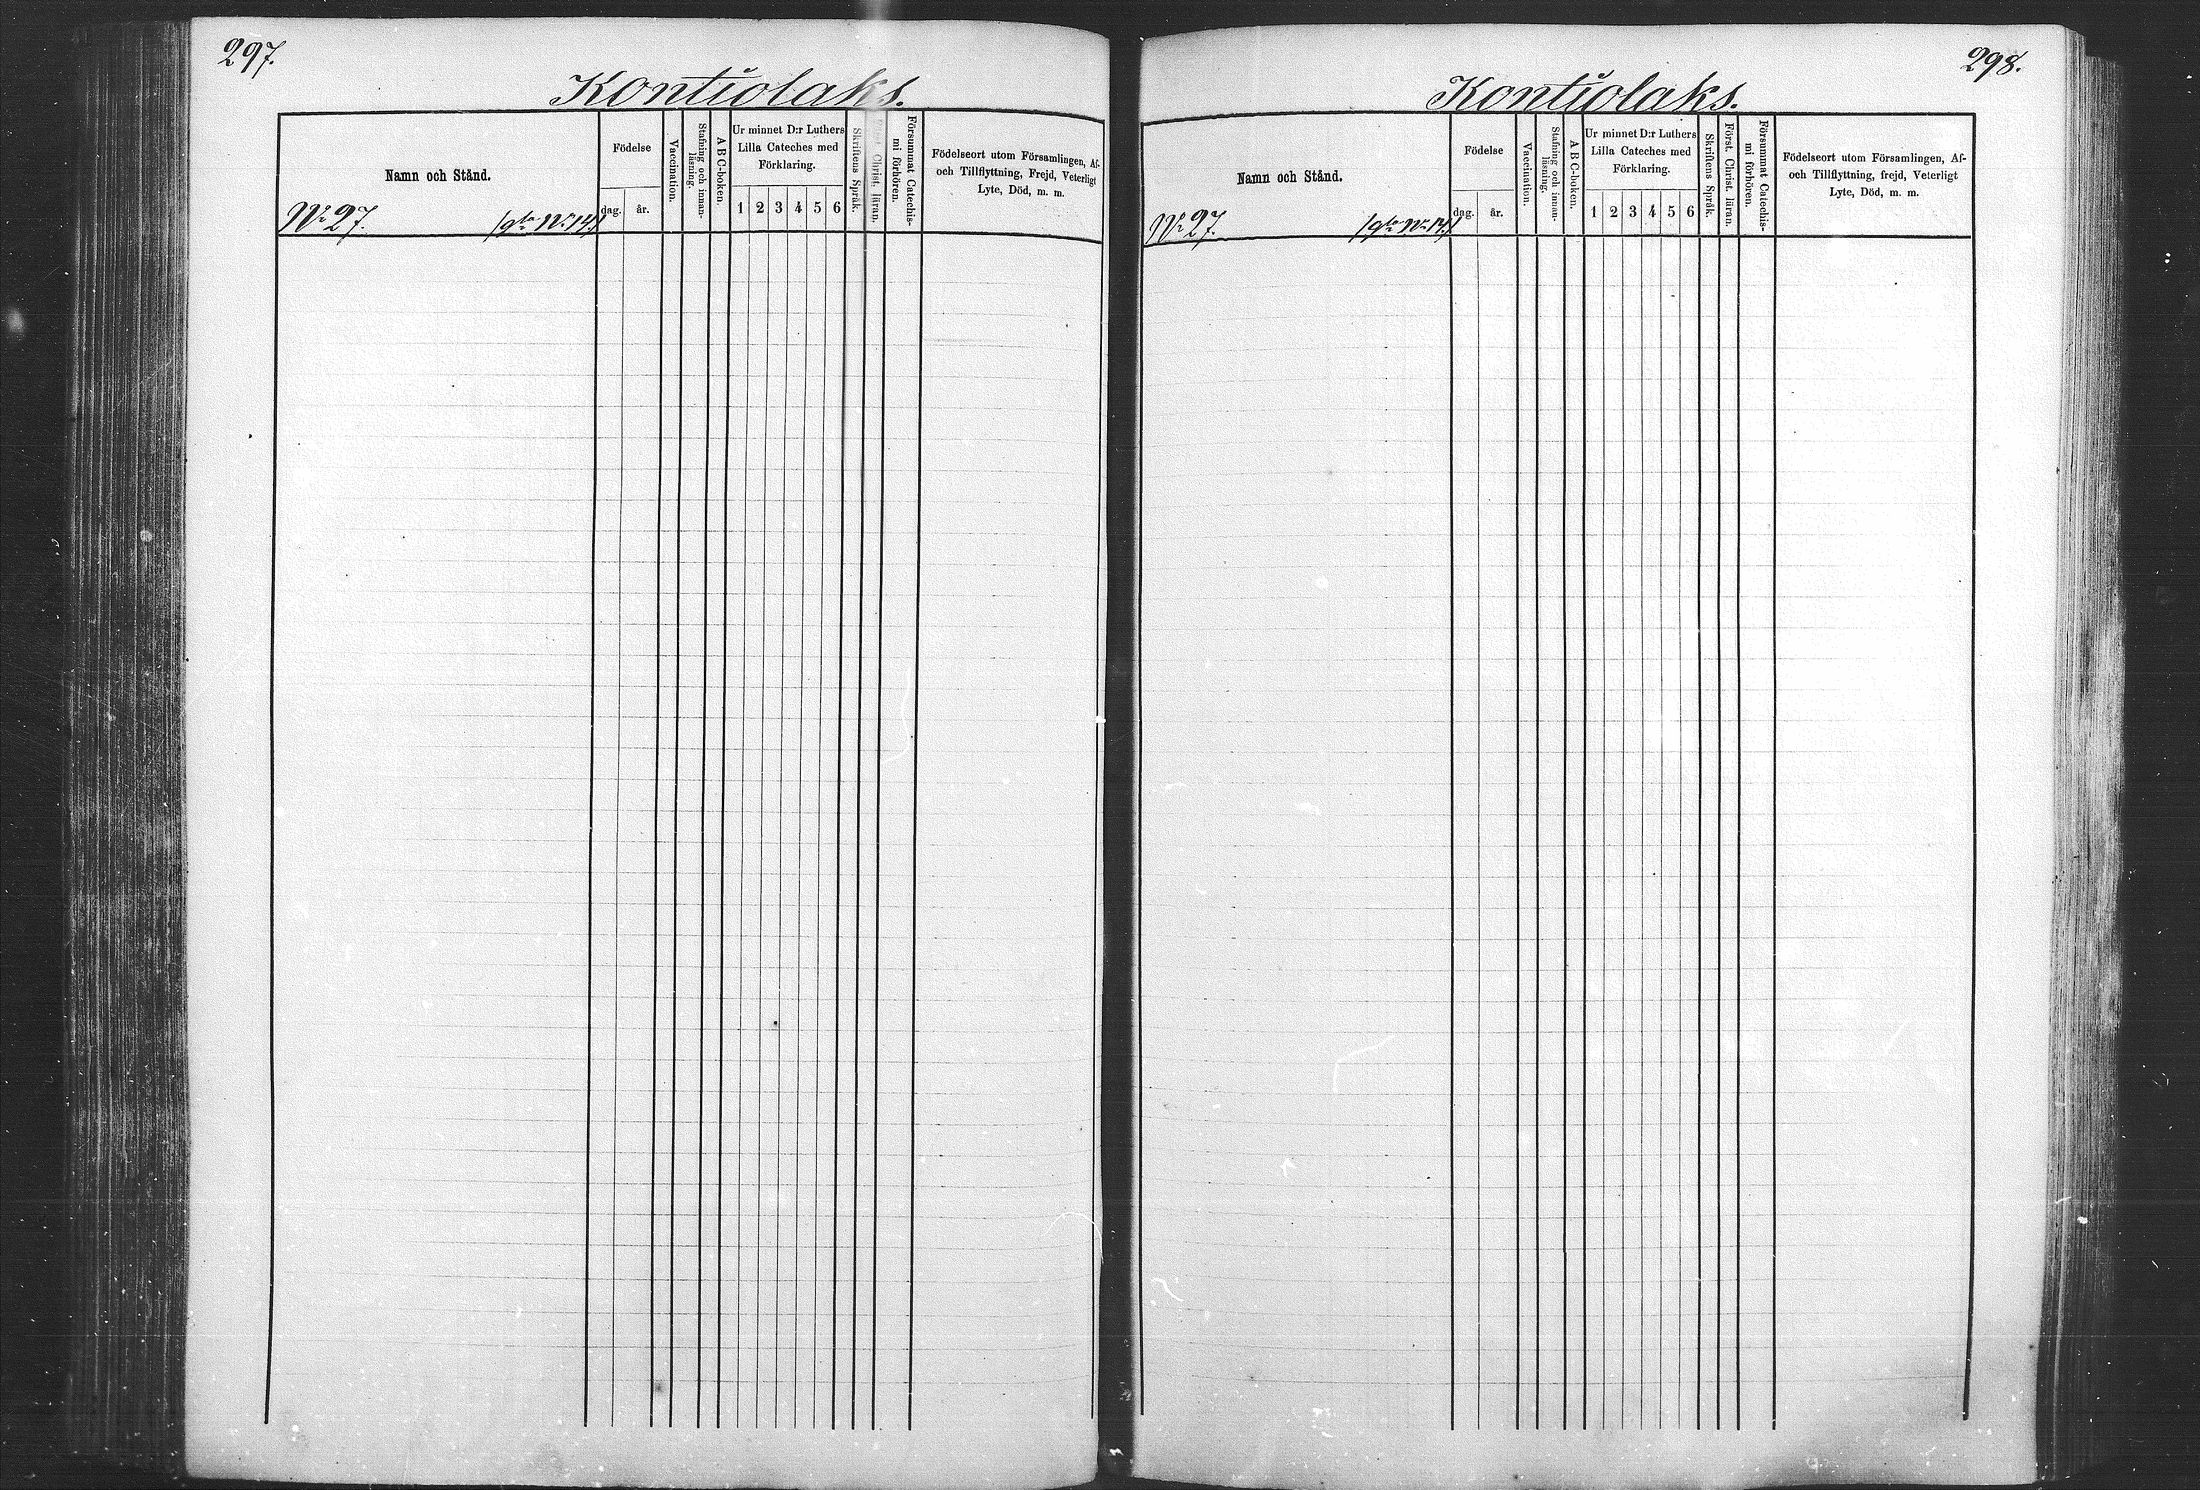 297.
Kontiolaks.
Namn och Stånd.
Födelse
dag. år.
Vaccination.
Stafning och innan-
läsning.
A B C-boken.
Ur minnet D:r Luthers
Lilla Cateches med
Förklaring.
1 2 3 4 5 6
Skriftens Språk.
Först. Christ. läran.
Försummat Catechis-
mi förhören.
Födelseort utom Församlingen, Af-
och Tillflyttning, Frejd, Veterligt
Lyte, Död, m. m.
No 27. (gla No 14.)
298.
Kontiolaks.
Namn och Stånd.
Födelse
dag. år.
Vaccination.
Stafning och innan-
läsning.
A B C-boken.
Ur minnet D:r Luthers
Lilla Cateches med
Förklaring.
1 2 3 4 5 6
Skriftens Språk.
Först. Christ. läran.
Försummat Catechis-
mi förhören.
Födelseort utom Församlingen, Af-
och Tillflyttning, frejd, Veterligt
Lyte, Död, m. m.
No 27. (gla No 14.)